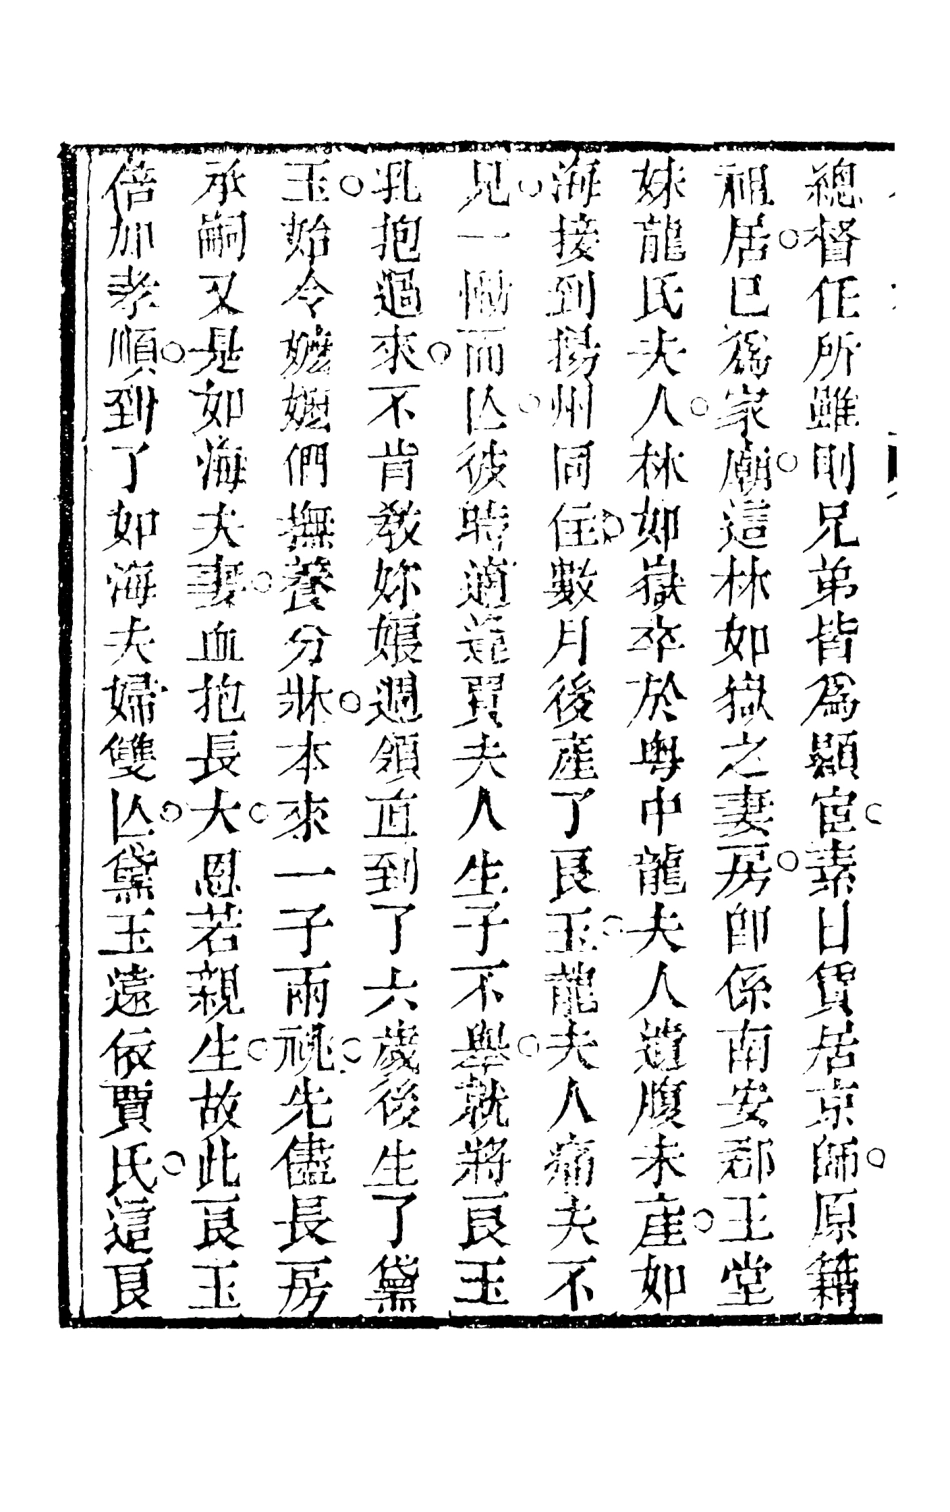 總督任所雖則兄弟皆爲顯宦○素日賃居京師○原籍
祖居○已爲家廟○這林如嶽之妻房○卽係南安郡王堂
妹龍氏夫人○林如嶽卒於粤中龍夫人遺腹未産○如
海接到揚州同住○數月後産了良玉○龍夫人痛夫不
見○一慟而亡○彼時適遇賈夫人生子不舉○就將良玉
乳抱過來○不肯教奶娘週領直到了六歲後生了黛
玉○始令嬷嬷們撫養分牀○本來一子兩視○先儘長房
承嗣又是如海夫妻○血抱長大○恩若親生○故此良玉
倍加孝順○到了如海夫婦雙亡○黛玉遠依賈氏○這良